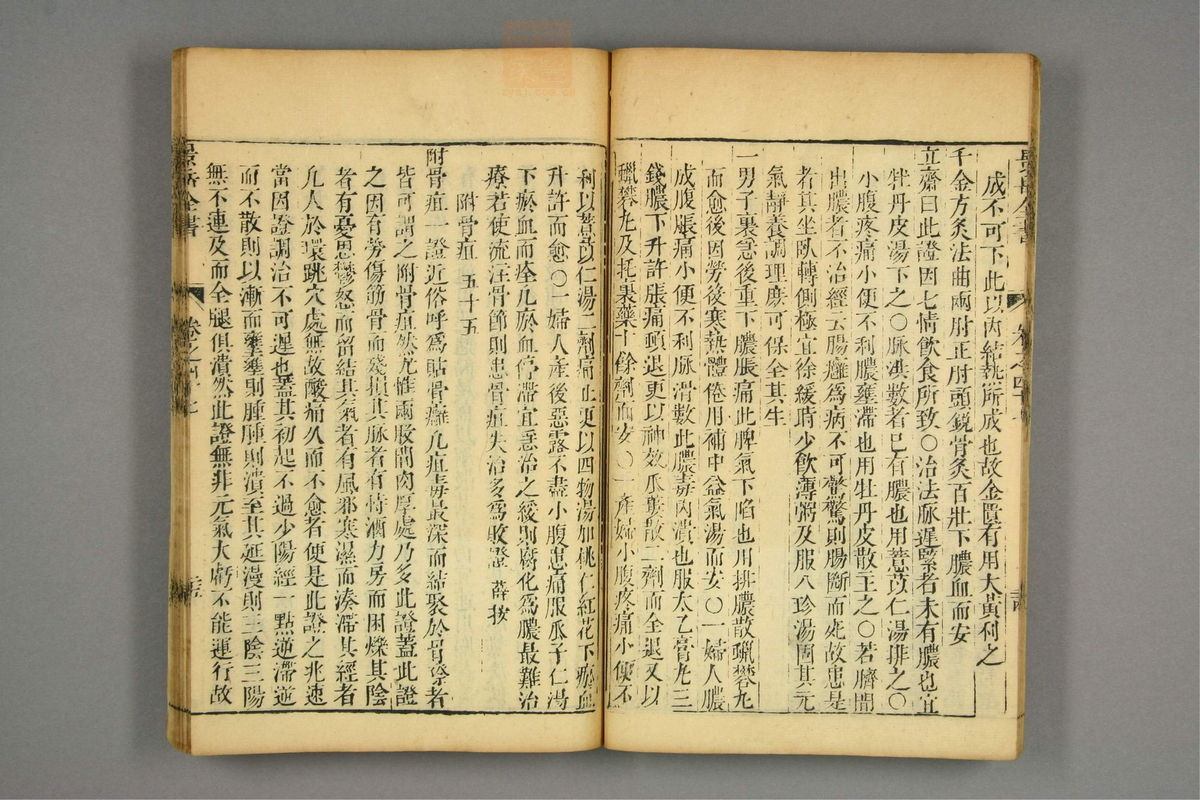 景岳全書
卷之四十七
成不可下此以內結熱所成也故金匱有用大黃利之
千金方灸法曲兩肘正肘頭銳骨灸百壯下膿血而安
立齋曰此證因七情飲食所致○治法脈遲緊者未有膿也宜
牡丹皮湯下之○脈洪數者已有膿也用薏苡仁湯排之○
小腹疼痛小便不利膿壅滯也用牡丹皮散主之○若臍間
出膿者不治經云腸癰為病不可驚驚則腸斷而死故患是
者其坐臥轉側極宜徐緩時少飲薄粥及服八珍湯固其元
氣靜養調理庶可保全其生
一男子裏急後重下膿脹痛此脾氣下陷也用排膿散蠟礬丸
而愈後因勞後寒熱體倦用補中益氣湯而安○一婦人膿
成腹脹痛小便不利脈滑數此膿毒內潰也服太乙膏丸三
錢膿下升許脹痛頓退更以神效瓜蔞散二劑而全退又以
蠟礬丸及托裏藥十餘劑而安○一產婦小腹疼痛小便不
利以薏苡仁湯二劑痛止更以四物湯加桃仁紅花下瘀血
升許而愈○一婦人產後惡露不盡小腹患痛服瓜子仁湯
下瘀血而痊凡瘀血停滯宜急治之緩則腐化為膿最難治
療若使流注骨節則患骨疽失治多為敗證 薛按
附骨疽 五十五
附骨疽一證近俗呼為貼骨癰凡疽毒最深而結聚於骨際者
皆可謂之附骨疽然尤惟兩股間肉厚處乃多此證蓋此證
之因有勞傷筋骨而殘損其脈者有恃酒力房而困爍其陰
者有憂思鬱怒而留結其氣者有風邪寒濕而湊滯其經者
凡人於環跳穴處無故酸痛久而不愈者便是此證之兆速
當因證調治不可遲也蓋其初起不過少陽經一點逆滯逆
而不散則以漸而壅壅則腫腫則潰至其延漫則三陰三陽
無不連及而全腿俱潰然此證無非元氣大虧不能運行故
景岳全書
卷之四十七